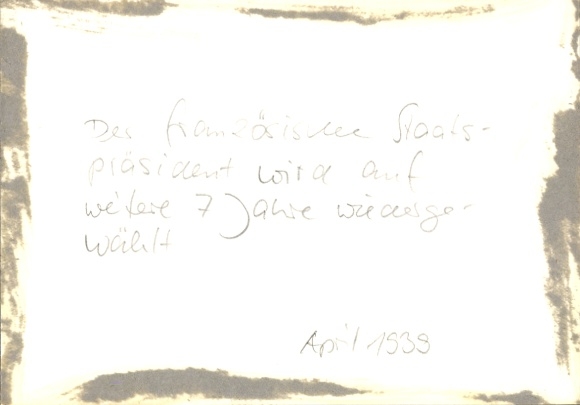 Der französische Staats-
präsident wird auf
weitere 7 Jahre wiederge-
wählt
April 1939